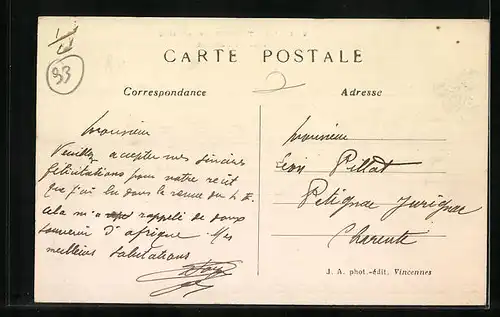 93
CARTE POSTALE
Correspondance
Adresse
Monsieur
Veuillez accepter mes sincères
félicitations pour votre récit
que j'ai lu dans la revue du
cela m'a rappelé de doux
souvenir d'afrique. Mes
meilleurs salutations
Monsieur
Léon Pillat
Petignac Jurignac
Charente
J. A. phot.-édit. Vincennes